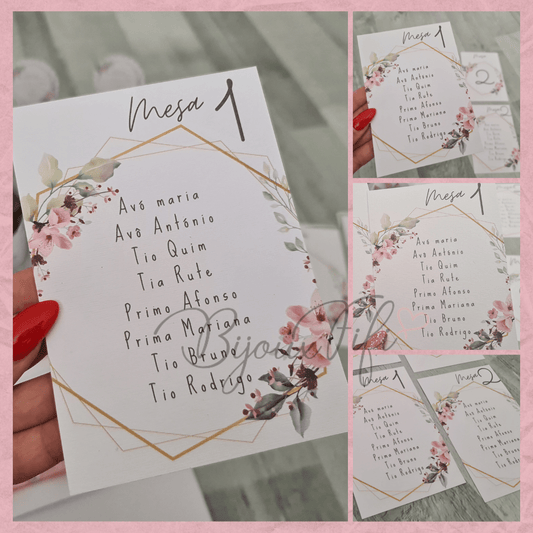 Mesa 1
Avó maria
Avô António
Tio Quim
Tia Rute
Primo Afonso
Prima Mariana
Tio Bruno
Tio Rodrigo
Mesa 1
Avó maria
Avô António
Tio Quim
Tia Rute
Primo Afonso
Prima Mariana
Tio Bruno
Tio Rodrigo
2
Mesa 1
Avó maria
Avô António
Tio Quim
Tia Rute
Primo Afonso
Prima Mariana
Tio Bruno
Tio Rodrigo
Mesa 1
Avó maria
Avô António
Tio Quim
Tia Rute
Primo Afonso
Prima Mariana
Tio Bruno
Tio Rodrigo
Mesa 2
Avó maria
Avô António
Tio Quim
Tia Rute
Primo Afonso
Prima Mariana
Tio Bruno
Tio Rodrigo